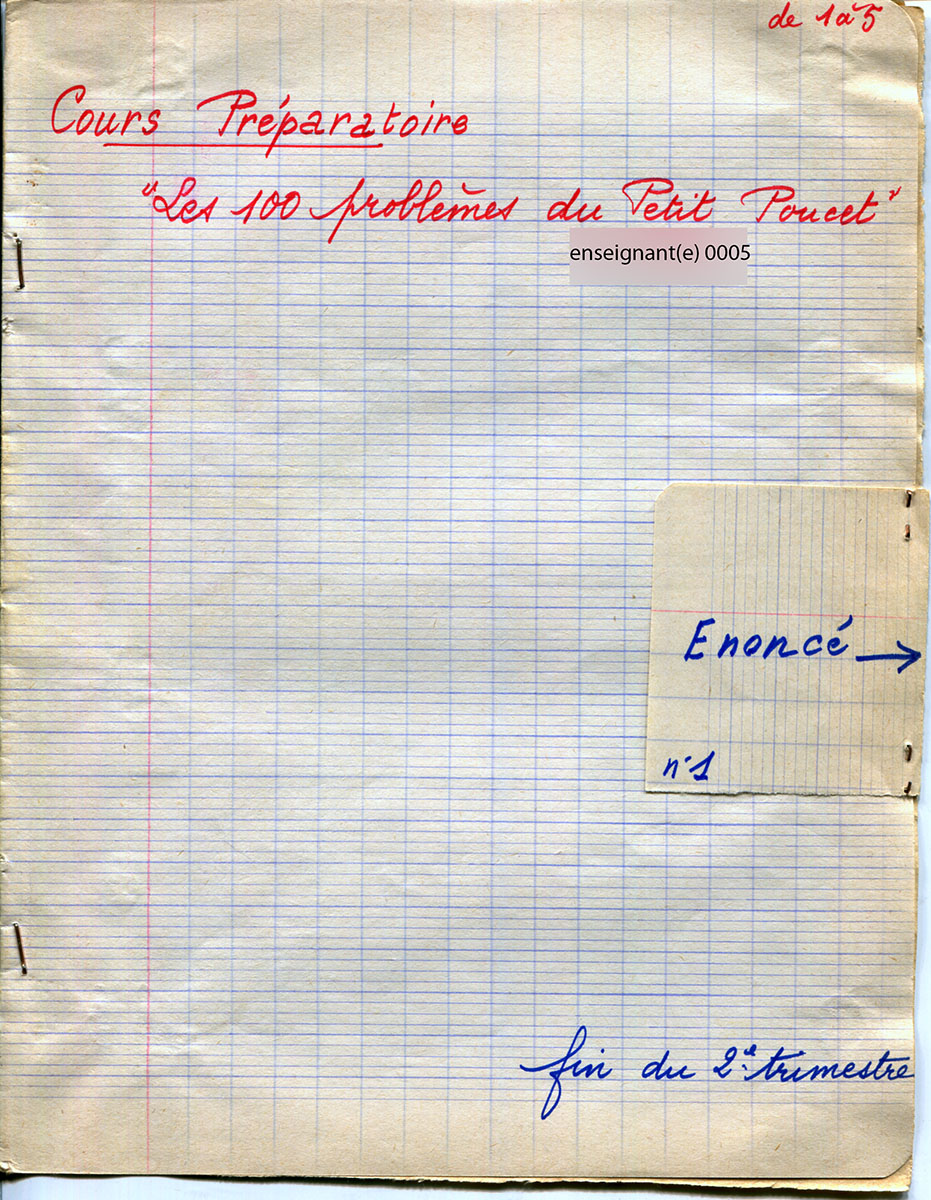 de 1 à 5
Cours Préparatoire
"Les 100 problèmes du Petit Poucet"
enseignant(e) 0005
Enoncé →
n°1
fin du 2e trimestre